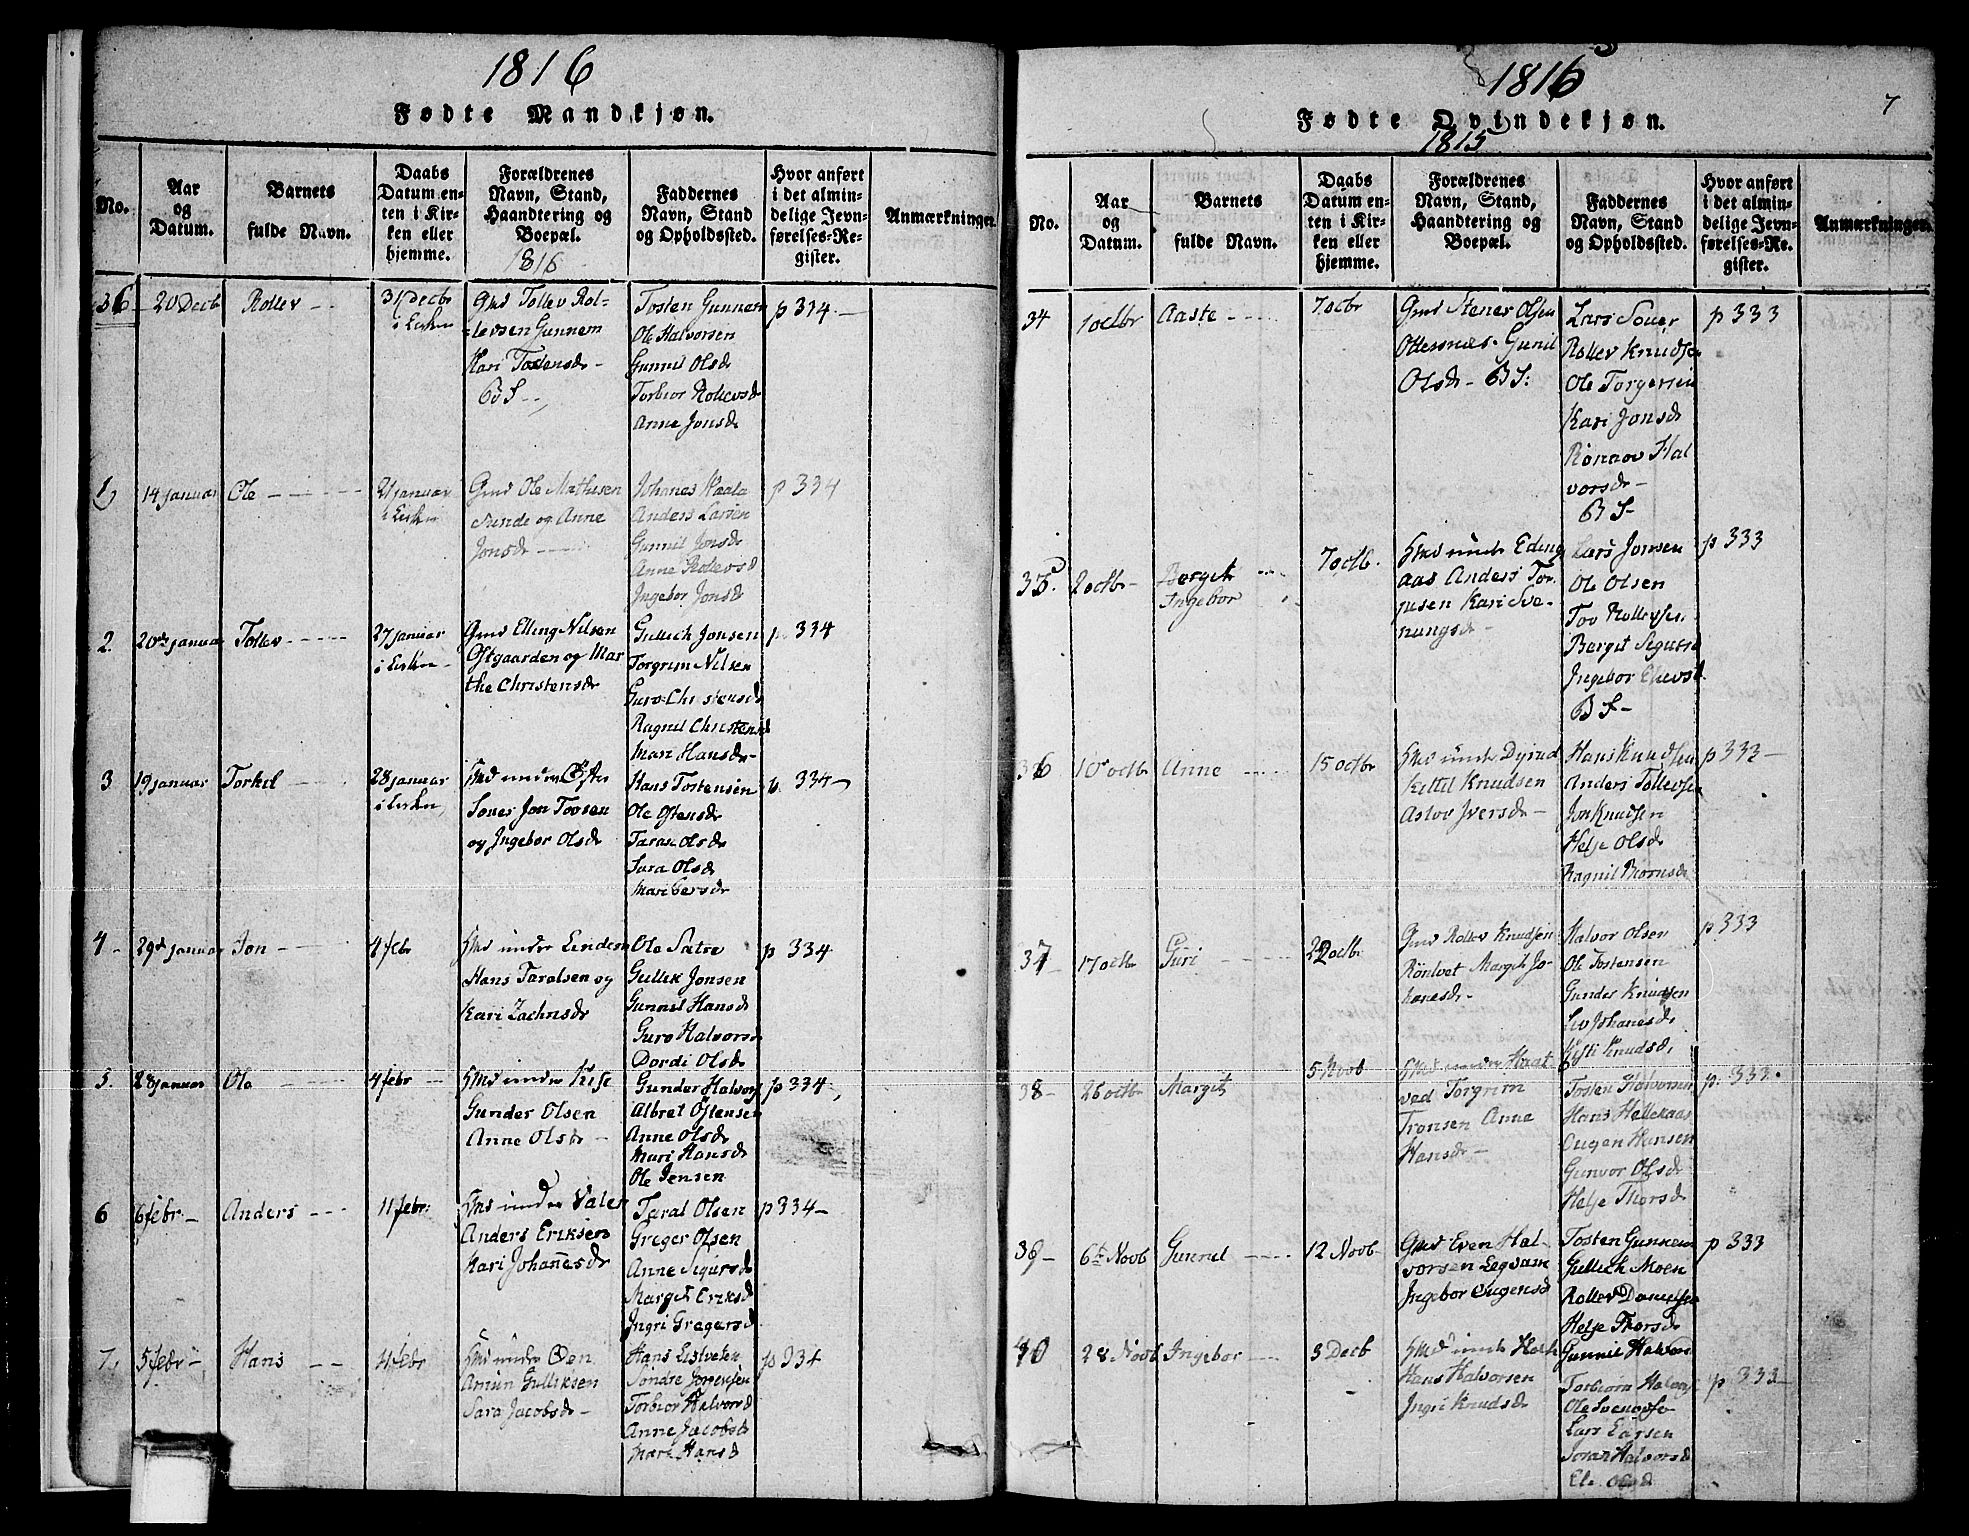 1816
Fødte Mandkjøn.
No.
Aar
og
Datum.
Barnets
fulde Navn.
Daabs
Datum en-
ten i Kir-
ken eller
hjemme.
Forældrenes
Navn, Stand,
Haandtering og
Boepæl.
1816
Faddernes
Navn, Stand
og Opholdssted.
Hvor anført
i det almin-
delige Jevn-
førelses-Re-
gister.
Anmærkninger.
36
20 Decb
Rollev
31 Decbr
Gmd Tollev Rol-
levsen Gunnem
Kari Tostensdr
B S
Tosten Gunnem
Ole Halvorsen
Gunnil Olsdr
Torbior Rollevsd
Anne Jonsdr
p 334
1
14 januar
Ole
21 januar
Gmd Ole Mathisen
Sunde og Anne
Jonsdr
Johanes Kaala
Anders Larsen
Gunnil Jonsdr
Anne Rollevsd
Ingebor Jonsdr
p 334
2.
20de januar
Tollev
27 januar
Gmd Elling Nilsen
Ostgaarden og Mar
the Christensdr
Gullich Jonsen
Torgrim Nilsen
Guro Christensdr
Ragnil Christensd
Mari Hansdr
p. 334
3
19 januar
Torkel
28 januar
Hmd under
Jon Tovsen
og Ingebor Olsdr
Hans Tostensen
Ole Ostensdr
Taran Olsdr
Sara Olsdr
p. 334
4
29de januar
Jon
4 febr
Hmd under Lindem
Hans Taralsen og
Kari Zachrisdr
Ole Satre
Gullik Jonsen
Gunnil Hansdr
Guro Halvorsd
Dordi Olsdr
p 334
5.
28 januar
Ole
4 febr
Hmd under
Gunder Olsen
Anne Olsdr
Gunder Halvors
Albret Østensen
Anne Olsdr
Mari Hansdr
Ole Jensen
p 334
6
6 febr
Anders
11 febr:
Hmd under Valer
Anders Eriksen
Kari Johannesdr
Taral Olsen
Greger Olsen
Anne Sigursdr
Margit Eriksd
Ingri Gregersd
p 334
7.
5 febr
Hans
4 febr
Hmd under Øen
Amun Gulliksen
Sara Jacobsdr
Hans
Sondre
Torbior Halvorsd
Anne Jacobsdr
Mari Hansd
p 334
1816
7
Fødte Qvindekjøn.
1815
No.
Aar
og
Datum.
Barnets
fulde Navn.
Daabs
Datum en-
ten i Kir-
ken eller
hjemme.
Forældrenes
Navn, Stand,
Haandtering og
Boepæl.
Faddernes
Navn, Stand
og Opholdssted.
Hvor anført
i det almin-
delige Jevn-
førelses-Re-
gister.
Anmærkninger.
34
1 octbr
Aaste
7 octbr
Gmd Stener Olsen
Ottersnes Gunil
Olsdr B S:
Lars Sover
Rollev Knudsen
Ole Torgersen
Kari Jonsdr
Rønnov Hal
vorsdr
B S
p 333
35.
2 octbr
Bergit
Ingebor
7 octb.
Hmd under Eding
aas Anders Tor
jusen Kari Sve-
nungsdr
Lars Jonsen
Ole Olsen
Tov Rollevsen
Bergit Sigursd
Ingebor
B S
p 333
36
10 octb
Anne
15 octbr
Hmd under Dyrud
Kittil Knudsen
Aslov Iversdr
Hans Knudsen
Anders Tollevsen
Jon Knudsen
Helje Olsdr
Ragnil Biørnsdr
p 333
37
17 octb
Guri
22 octbr
Gmd Rollev Knudsen
Rønlvet Margit Jo-
hanesdr
Halvor Olsen
Ole Tostensen
Gunder Knudsen
Liv Johanesdr
Kisti Knudsdr
p 333
38
26 octbr
Margit
5 Novb
Hmd under Haat
ved Torgrim
Tronsen Anne
Hansdr
Tosten Halvorsen
Hans Hellekaas
Ougen Hansen
Gunvor Olsdr
Helje Thorsdr
p. 333.
39
6te Novb
Gunnil
12 Novb
Gmd Even Hal-
vorsen Legvam
Ingebor Ougensd
Tosten Gunnem
Gullick Moen
Rollev Danielsen
Helje Thorsdr
Gunnil Halvorsd
p 333
40
28 Novb
Ingebor
3 Decb
Hmd under Holte
Hans Halvorsen
Ingri Knudsdr
Torbiørn Halvors
Ole
Lars Larsen
Halvorsd
Olsd
p 333